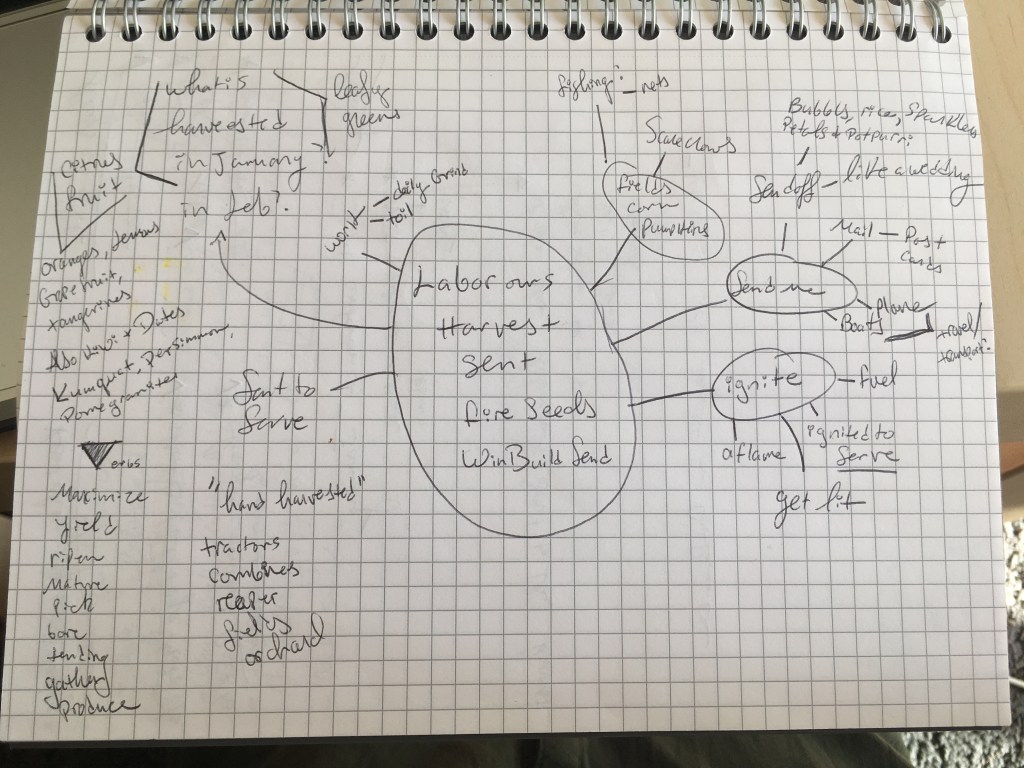 what is
harvested
in January?
in feb?.
leafy
greens
citrus
fruit
oranges, lemons
Grapefruit,
tangerines
Also kiwi + Dates
Kumquat, Persimmon,
Pomegranates
work
- daily Grind
- toil
fishing: - nets
Scarecrows
fields
corn
Pumpkins
Bubbls, rice, Sparklers
Petals + Potpurri
Send off - like a wedding
Mail - Post
Cards
Send me
plane
Boats
travel/
ignite
- fuel
aflame
ignited to
Serve
get lit
Laborours
Harvest
Sent
Fire Seeds
Win Build Send
Sent to
Serve
erbs
Maximize
yield
ripen
Mature
pick
bore
tending
gathery
produce
"hand harvested"
tractors
combines
reaper
fields
orchard